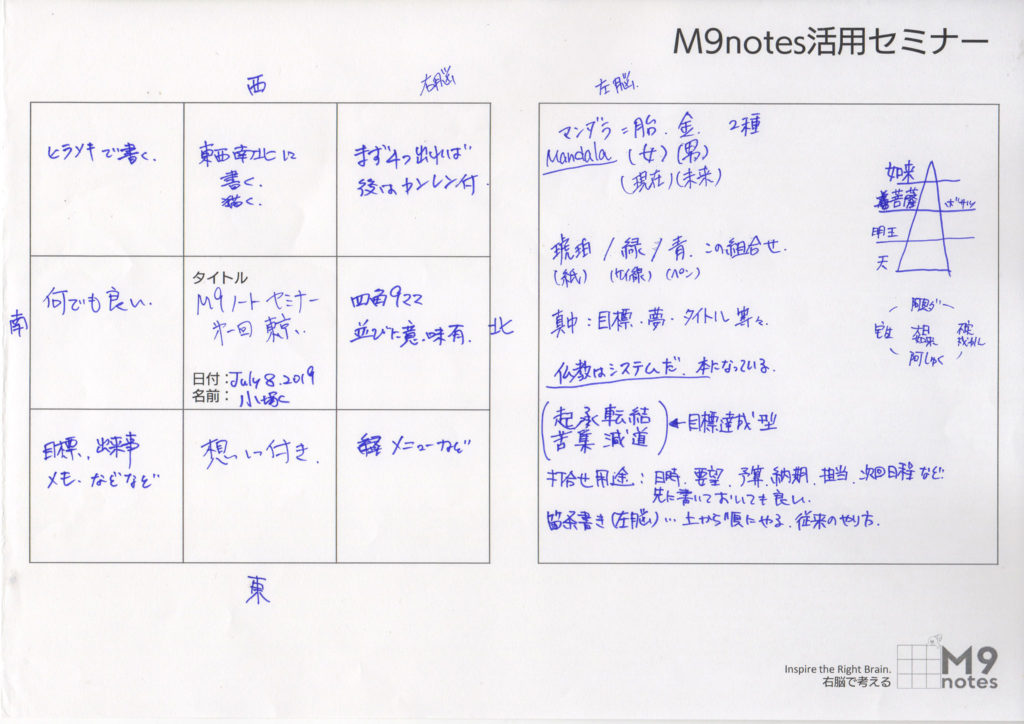 M9notes活用セミナー
西
右脳
左脳
南
北
東
ヒラメキで書く.
東西南北に
書く.
描く.
まず4つ出れば
後はカンレン付.
何でも良い.
タイトル
M9ノートセミナー
第一回 東京
日付:July 8.2019
名前:小塚
四角9ママ
並びに意味有.
目標、出来事
メモ、などなど
想いつき.
メニューなど
マンダラ = 胎. 金. 2種
Mandala (女)(男)
(現在)(未来)
琥珀 / 緑 / 青. この組合せ.
(紙) (ケイ線) (ペン)
真中:目標・夢・タイトル等々.
仏教はシステムだ. 本になっている.
起承転結
苦集滅道
←目標達成型
打合せ用途:日時.要望.予算.納期.担当.次回日程など
先に書いておいても良い.
箇条書き(左脳)…上から順にやる.従来のやり方.
如来
菩薩
ボサツ
明王
天
宝生
阿しゅく
Inspire the Right Brain.
右脳で考える
M9
notes